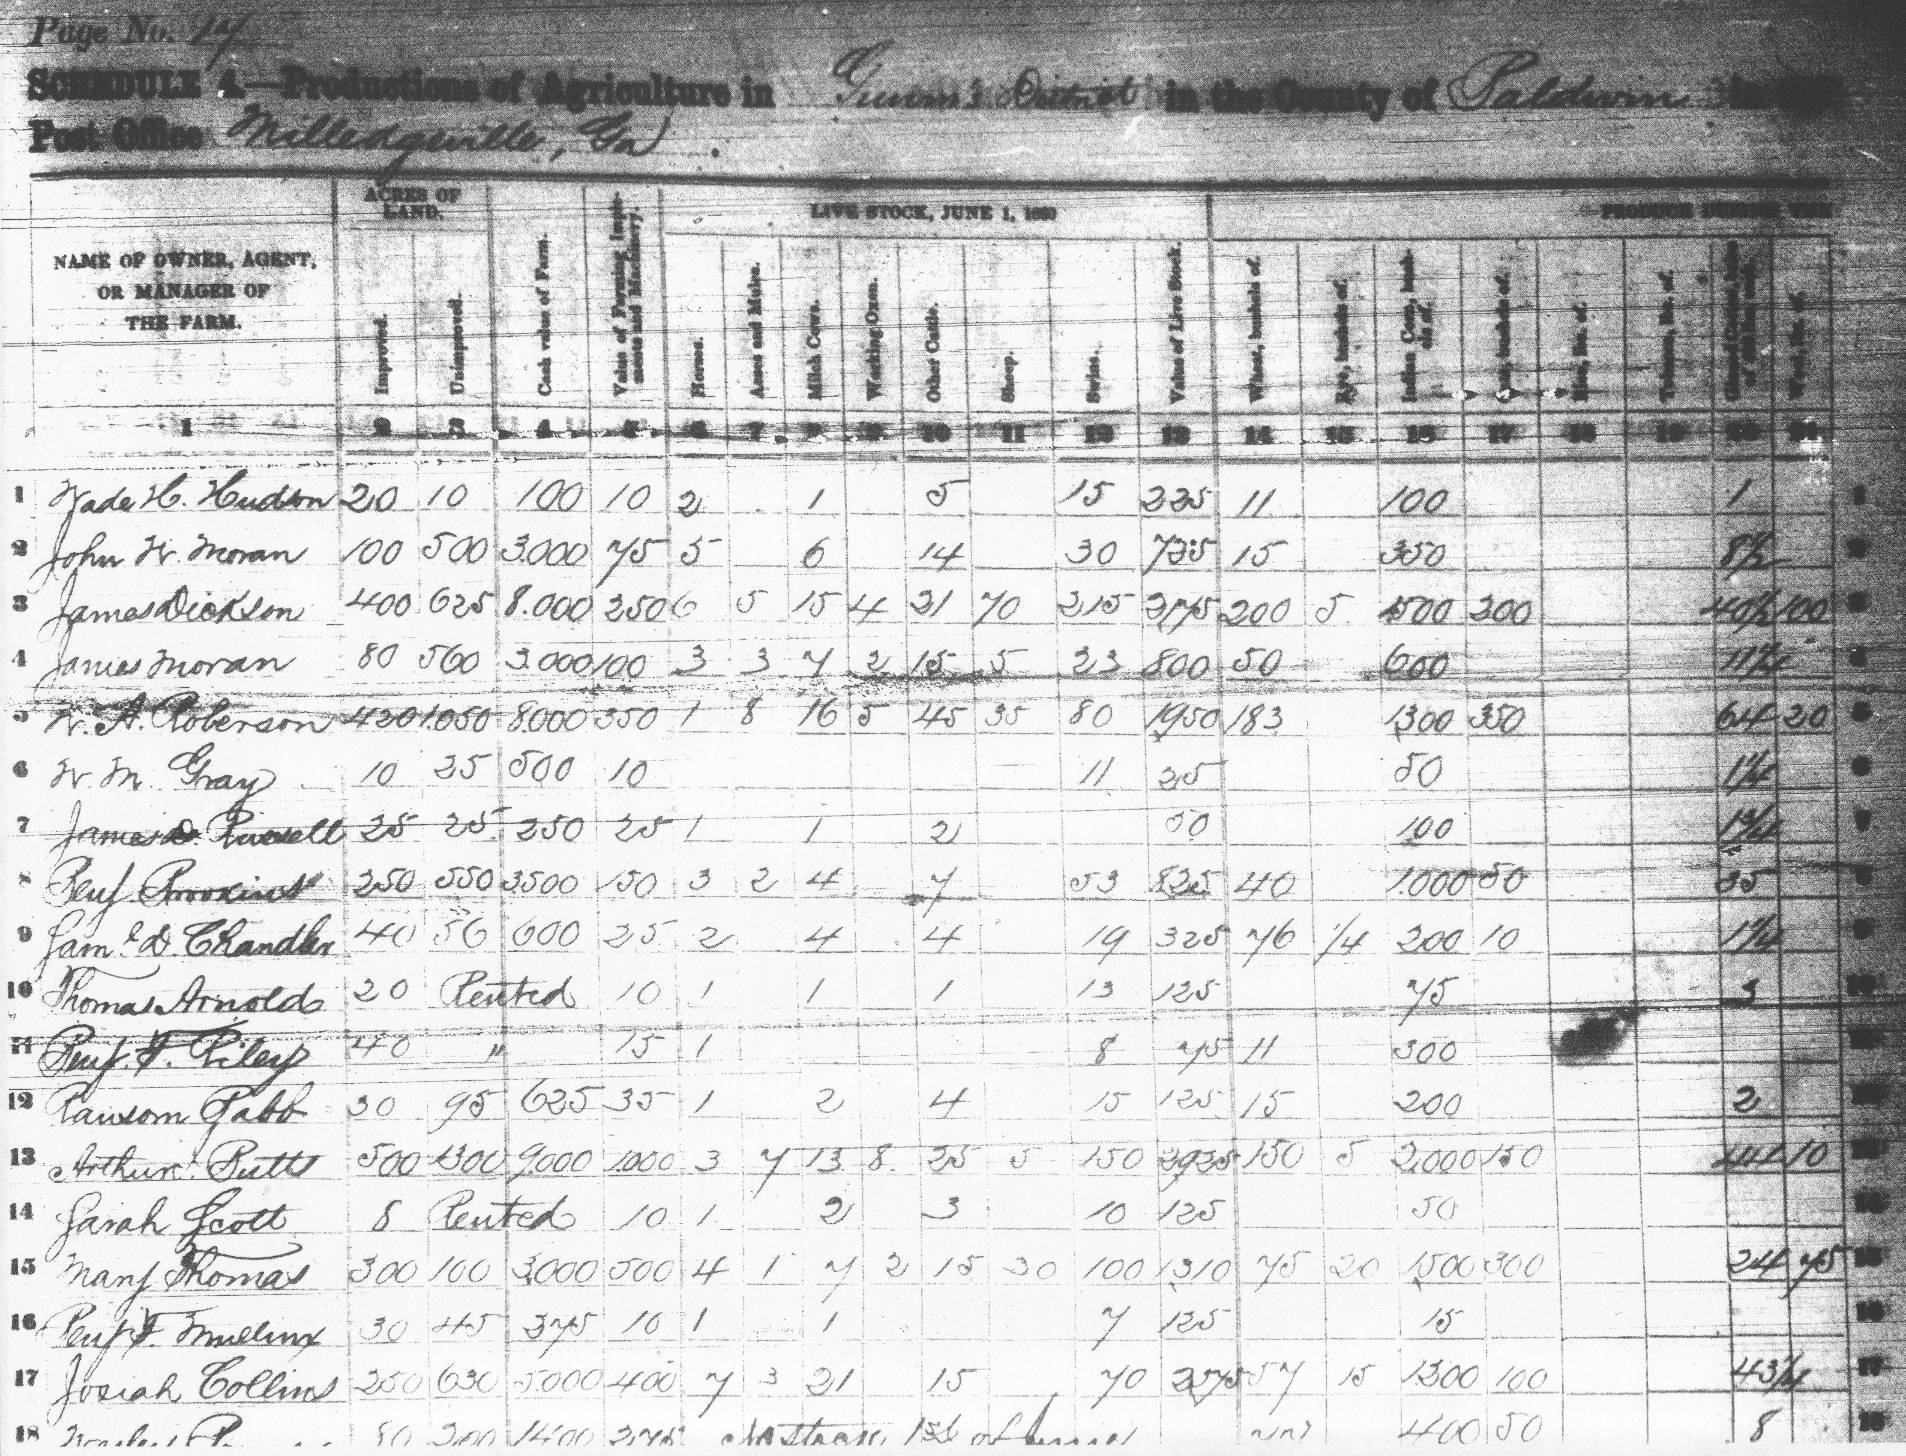 Page No. 14
SCHEDULE 4.—Productions of Agriculture in Gumm's District in the County of Baldwin
Post Office Milledgeville, Ga.
ACRES OF LAND. LIVE STOCK, JUNE 1, 1860 PRODUCE DURING THE
NAME OF OWNER, AGENT, OR MANAGER OF THE FARM. Improved. Unimproved. Cash value of Farm. Value of Farming Implements and Machinery. Horses. Asses and Mules. Milch Cows. Working Oxen. Other Cattle. Sheep. Swine. Value of Live Stock. Wheat, bushels of. Rye, bushels of. Indian Corn, bushels of. Oats, bushels of. Rice, lbs. of. Tobacco, lbs. of. Ginned Cotton, bales of 400 lbs. each. Wool, lbs. of.
1 2 3 4 5 6 7 8 9 10 11 12 13 14 15 16 17 18 19 20 21
1 Wade H. Hudson 20 10 100 10 2 1 5 15 225 11 100 1 1
2 John W. Moran 100 500 3.000 75 5 6 14 30 735 15 350 8 1/2 2
3 James Dickson 400 625 8.000 250 6 5 15 4 21 70 215 2175 200 5 1500 200 40 1/2 100 3
4 James Moran 80 560 3.000 100 3 3 7 2 15 5 23 800 50 600 11 1/4 4
5 W. A. Roberson 420 1.050 8.000 350 1 8 16 5 45 35 80 1950 183 1300 350 64 20 5
6 W. M. Gray 10 25 500 10 11 25 50 1 1/4 6
7 James D. Russell 25 25 250 25 1 1 2 50 100 1 3/4 7
8 Benj. Brookins 250 550 3500 150 3 2 4 7 53 825 40 1.000 50 35 8
9 Sam.l D. Chandler 40 56 600 25 2 4 4 19 325 76 1/4 200 10 1 1/4 9
10 Thomas Arnold 20 Rented 10 1 1 1 13 125 75 3 10
11 Benj. F. Riley 40 " 15 1 8 75 11 300 11
12 Ransom Babb 30 95 625 35 1 2 4 15 125 15 200 2 12
13 Arthur Butts 500 1300 9.000 1.000 3 7 13 8 25 5 150 2925 150 5 2.000 150 44 10 13
14 Sarah Scott 8 Rented 10 1 2 3 10 125 50 14
15 Many Thomas 300 100 3.000 500 4 1 7 2 15 30 100 1310 75 20 1500 300 24 75 15
16 Benj. F. Mullinx 30 45 375 10 1 1 7 125 15 16
17 Josiah Collins 250 630 5.000 400 7 3 21 15 70 2575 57 15 1300 100 43 1/4 17
18 80 200 1400 275 1st of June 400 50 8 18